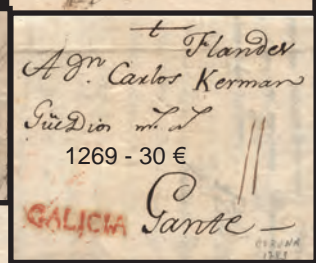 t
Flandes
A Dn Carlos Kerman
Güe Dios
1269 - 30 €
GALICIA
Gante
CORUNA